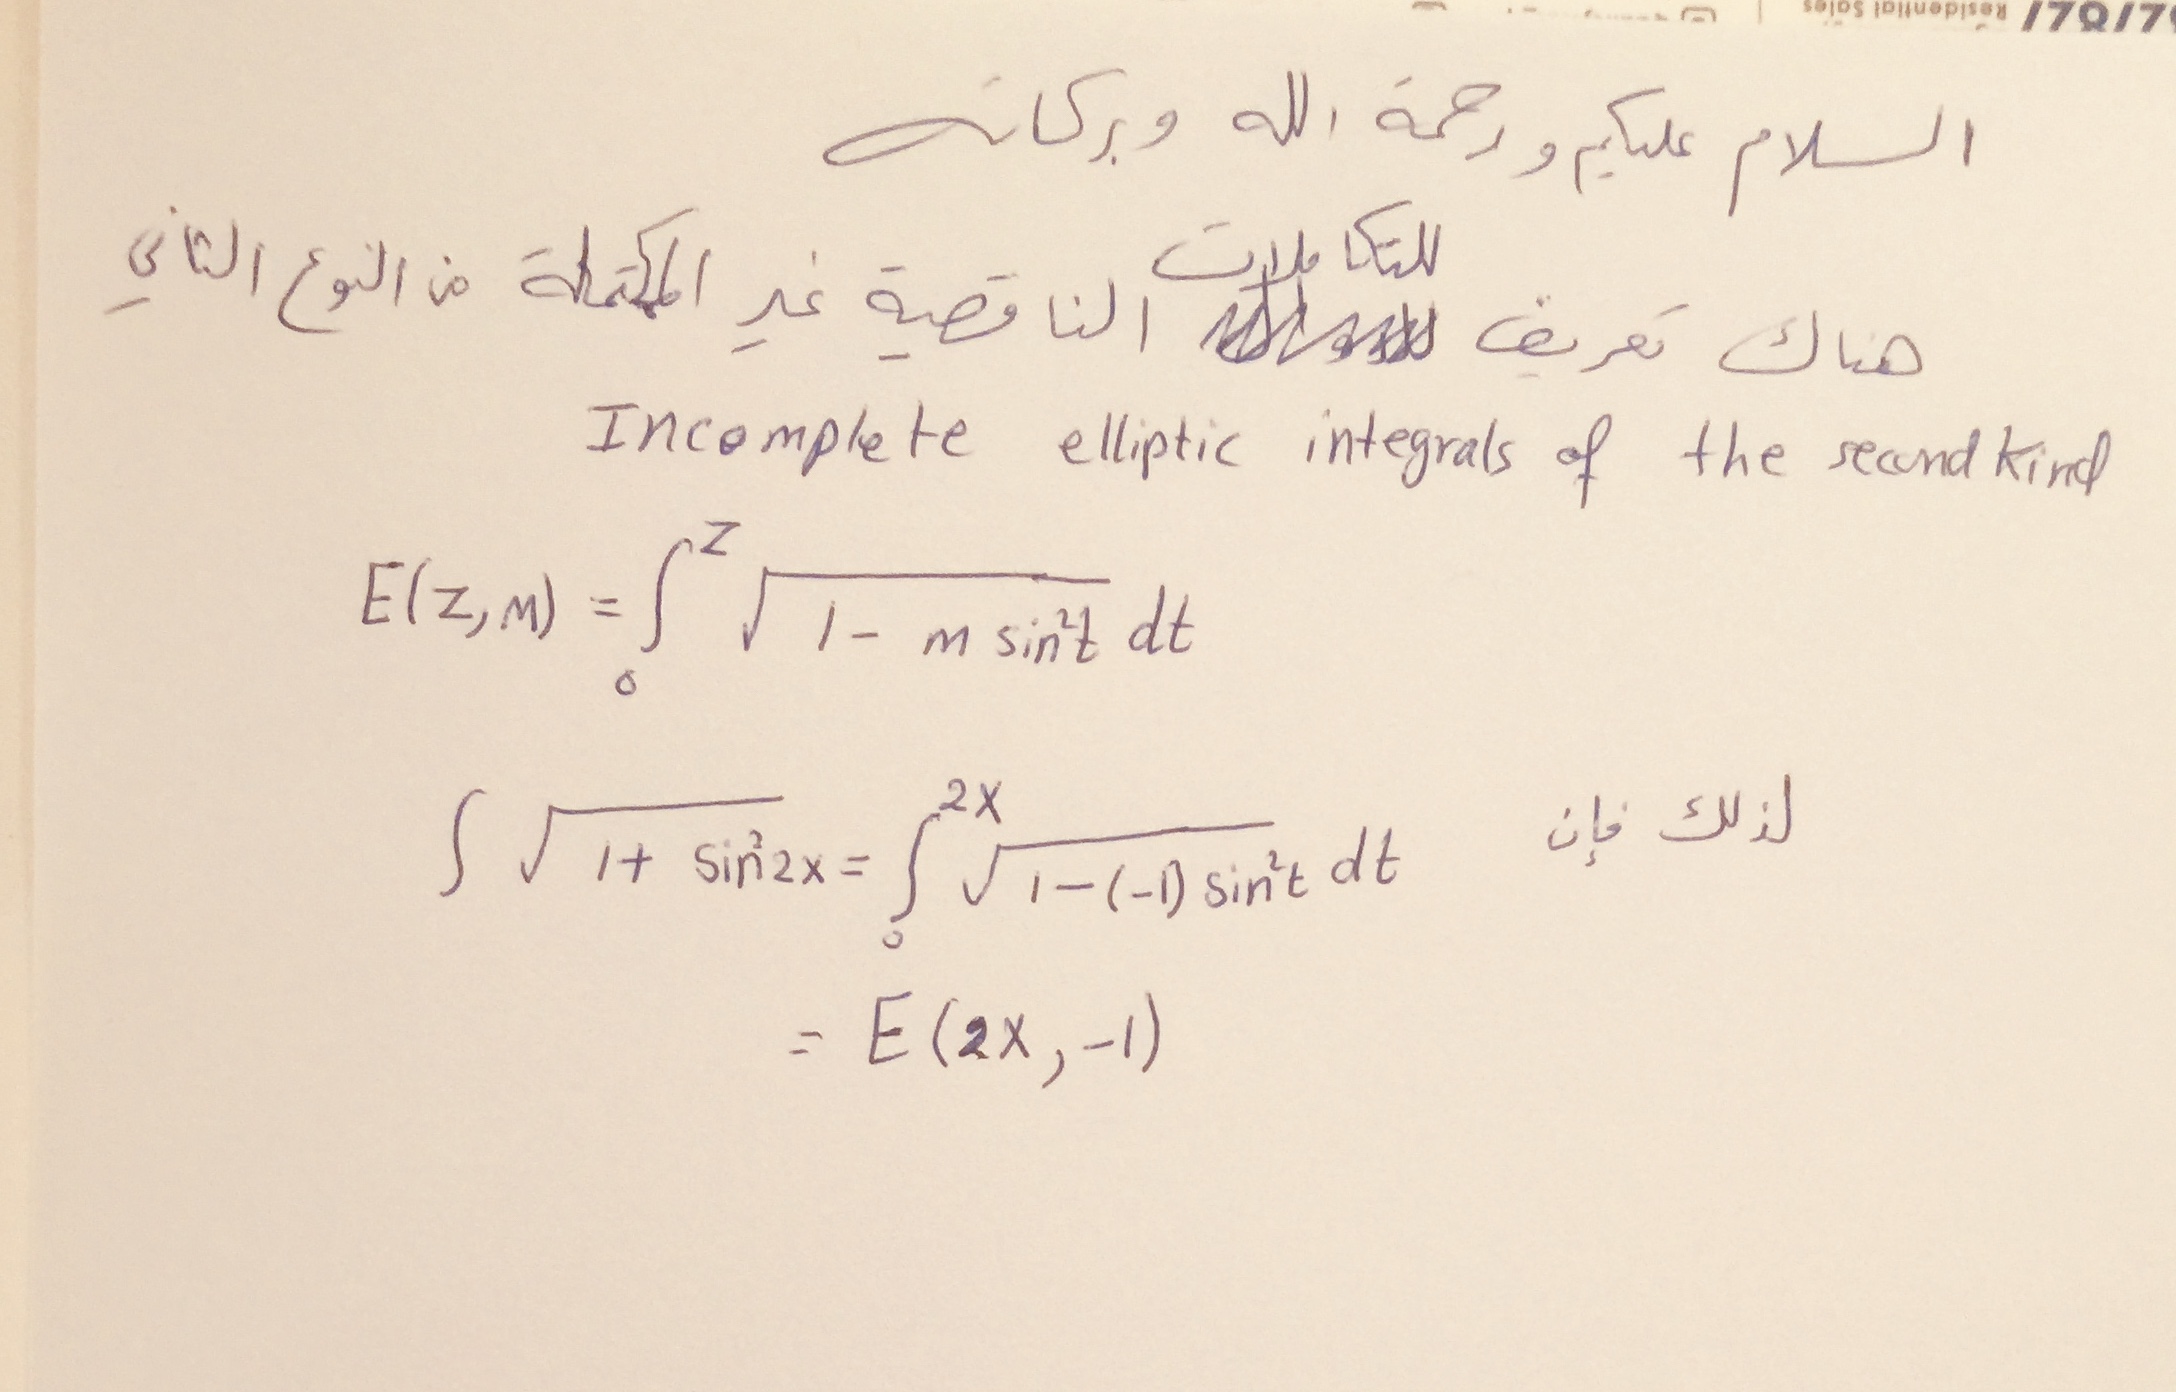 Residential Sales
السلام عليكم ورحمة الله وبركاته
هناك تعريف للتكاملات الناقصية غير المكتملة من النوع الثاني
Incomplete elliptic integrals of the second kind
E(z,m) = ∫₀ᶻ √(1 - m sin²t) dt
لذلك فإن ∫ √(1+ sin²2x) = ∫₀²ˣ √(1-(-1) sin²t) dt
= E(2x, -1)